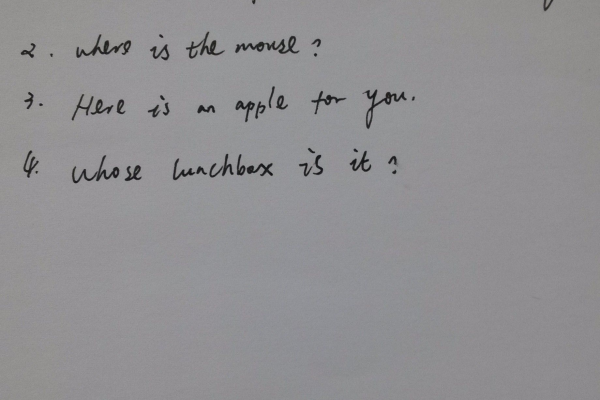 2. where is the mouse?
3. Here is an apple for you.
4. whose lunchbox is it?